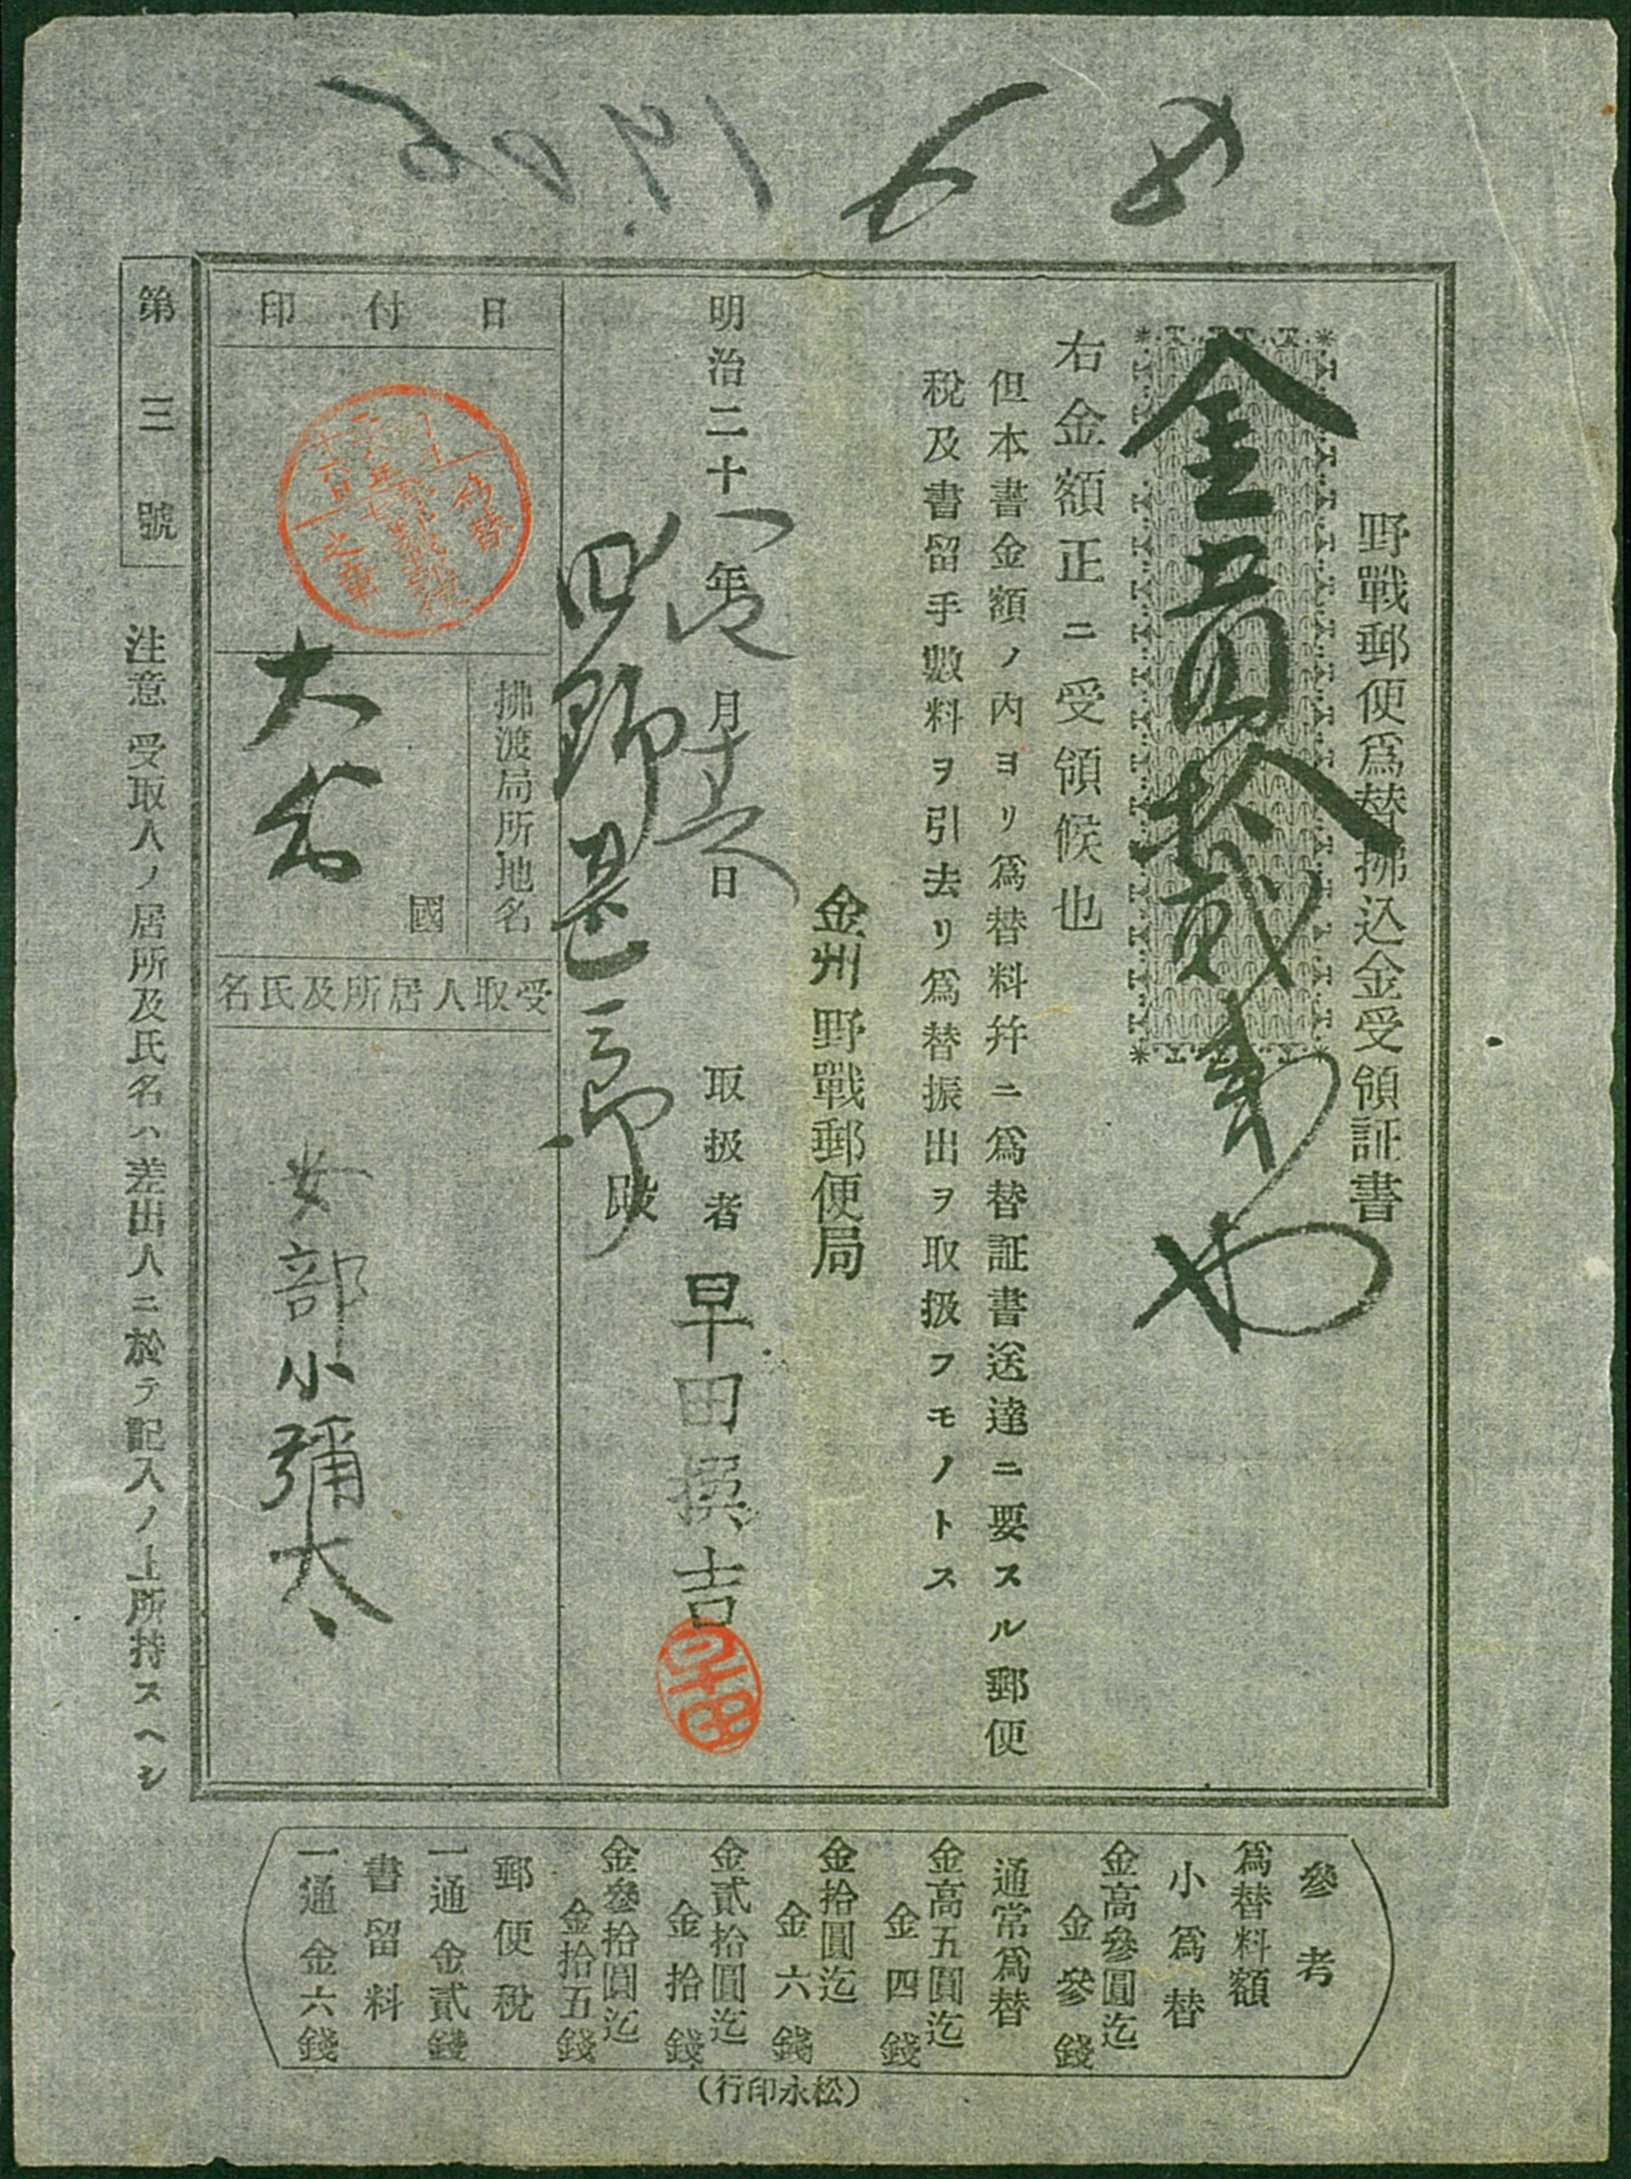 野戰郵便爲替拂込金受領証書
金
右金額正ニ受領候也
但本書金額ノ内ヨリ爲替料幷ニ爲替証書送達ニ要スル郵便
税及書留手數料ヲ引去リ爲替振出ヲ取扱フモノトス
金州野戰郵便局
明治二十八年 月 日 取扱者 早田 吉
早田
四野甚三郎 殿
日付印
拂渡局所地名
國
大分
受取人居所及氏名
安部小彌太
第三號
注意 受取人ノ居所及氏名ハ差出人ニ於テ記入ノ上所持スヘシ
參考
爲替料額
小爲替
金高參圓迄
金參錢
通常爲替
金高五圓迄
金四錢
金拾圓迄
金六錢
金貳拾圓迄
金拾錢
金參拾圓迄
金拾五錢
郵便税
一通 金貳錢
書留料
一通 金六錢
(松永印行)